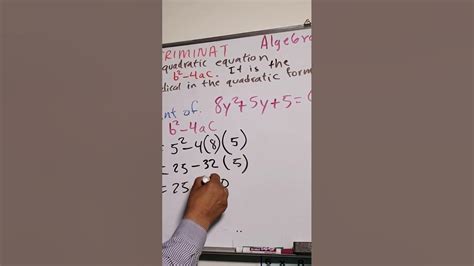 RIMINAT Algebra
quadratic equation
b²-4ac. It is the
dical in the quadratic form
nt of. 8y²+5y+5=
b²-4ac
= 5²-4(8)(5)
= 25-32(5)
= 25